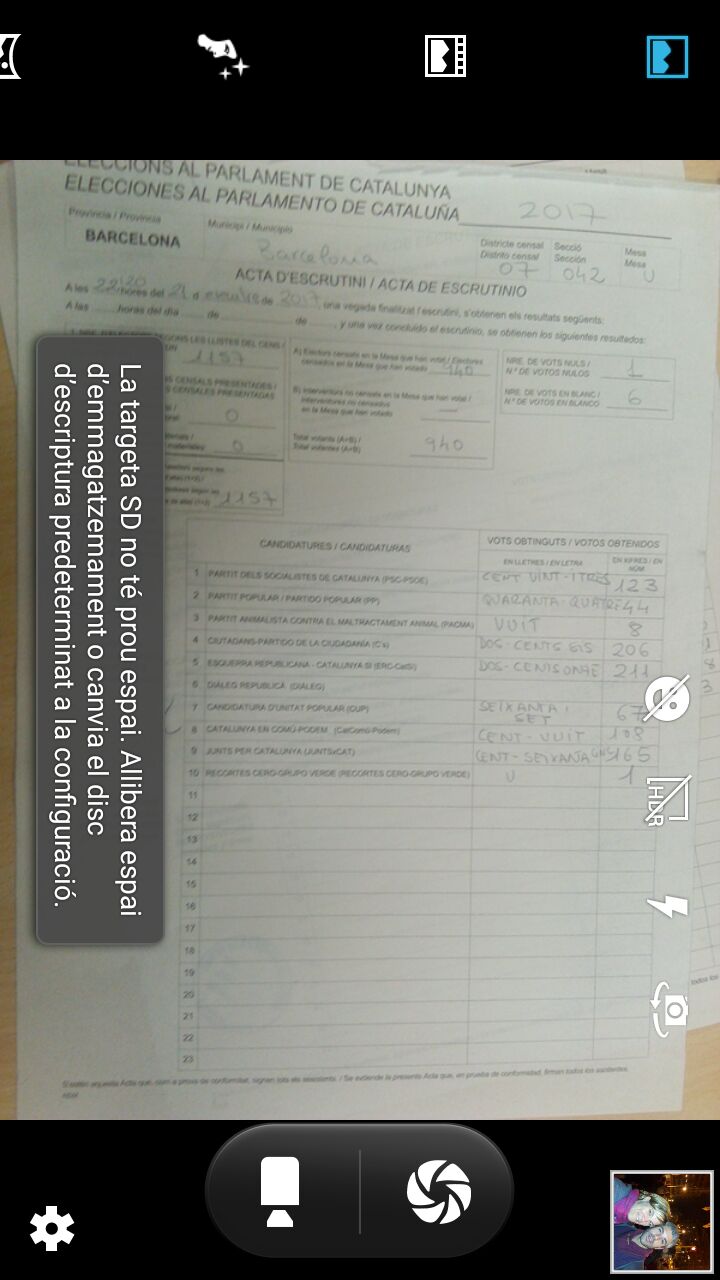 ELECCIONS AL PARLAMENT DE CATALUNYA
ELECCIONES AL PARLAMENTO DE CATALUÑA 2017
Provincia / Provincia
BARCELONA
Municipi / Municipio
Barcelona
Districte censal
Distrito censal
07
Secció
Sección
042
Mesa
Mesa
U
ACTA D'ESCRUTINI / ACTA DE ESCRUTINIO
A les 22'20 hores del 21 d de 2017 una vegada finalitzat l'escrutini, s'obtenen els resultats següents:
A las horas del día de de , y una vez concluido el escrutinio, se obtienen los siguientes resultados:
LES LLISTES DEL CENS /
1157
CENSALS PRESENTADES /
CENSALES PRESENTADAS
0
0
1157
A) Electors censats en la Mesa que han votat / Electores
censados en la Mesa que han votado 940
B) Interventors no censats en la Mesa que han votat /
Interventores no censados
en la Mesa que han votado —
Total votants (A+B) /
Total votantes (A+B) 940
NRE. DE VOTS NULS /
N.º DE VOTOS NULOS 1
NRE. DE VOTS EN BLANC /
N.º DE VOTOS EN BLANCO 6
CANDIDATURES / CANDIDATURAS
VOTS OBTINGUTS / VOTOS OBTENIDOS
EN LLETRES / EN LETRA
EN XIFRES / EN NÚM
1 PARTIT DELS SOCIALISTES DE CATALUNYA (PSC-PSOE) CENT VINT-I TRES 123
2 PARTIT POPULAR / PARTIDO POPULAR (PP) QUARANTA-QUATRE 44
3 PARTIT ANIMALISTA CONTRA EL MALTRACTAMENT ANIMAL (PACMA) VUIT 8
4 CIUTADANS-PARTIDO DE LA CIUDADANÍA (C's) DOS-CENTS SIS 206
5 ESQUERRA REPUBLICANA - CATALUNYA SÍ (ERC-CatSí) DOS-CENTS ONZE 211
6 DIÀLEG REPUBLICÀ (DIÀLEG)
7 CANDIDATURA D'UNITAT POPULAR (CUP) SEIXANTA I SET 67
8 CATALUNYA EN COMÚ-PODEM (CatComú-Podem) CENT-VUIT 108
9 JUNTS PER CATALUNYA (JUNTSxCAT) CENT-SEIXANTA CINC 165
10 RECORTES CERO-GRUPO VERDE (RECORTES CERO-GRUPO VERDE) U 1
11
12
13
14
15
16
17
18
19
20
21
22
23
S'estén aquesta Acta que, com a prova de conformitat, signen tots els assistents. / Se extiende la presente Acta que, en prueba de conformidad, firman todos los asistentes.
La targeta SD no té prou espai. Allibera espai
d'emmagatzemament o canvia el disc
d'escriptura predeterminat a la configuració.
HDR